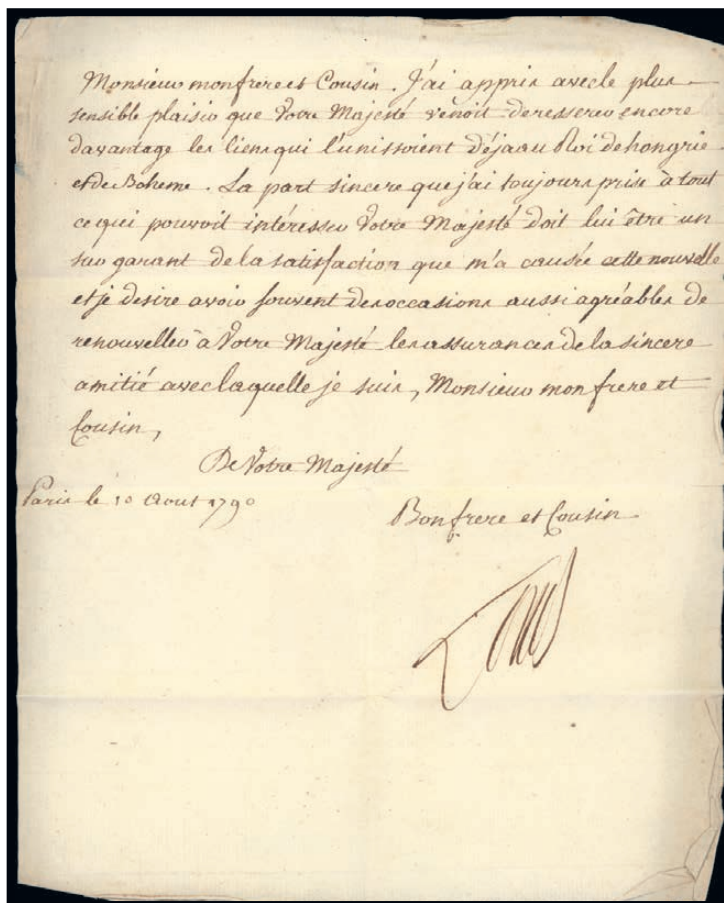 Monsieur mon frere et Cousin. J'ai appris avec le plus
sensible plaisir que Votre Majesté venoit de resserer encore
davantage les liens qui l'unissoient déja au Roi de hongrie
et de Boheme. La part sincere que j'ai toujours prise à tout
ce qui pouvoit intéresser Votre Majesté doit lui être un
sur garant de la satisfaction que m'a causée cette nouvelle
et je desire avoir souvent des occasions aussi agréables de
renouveller à Votre Majesté les assurances de la sincere
amitié avec laquelle je suis, Monsieur mon frere et
Cousin,
De Votre Majesté
Paris le 10 Aout 1790
Bon frere et Cousin
Louis